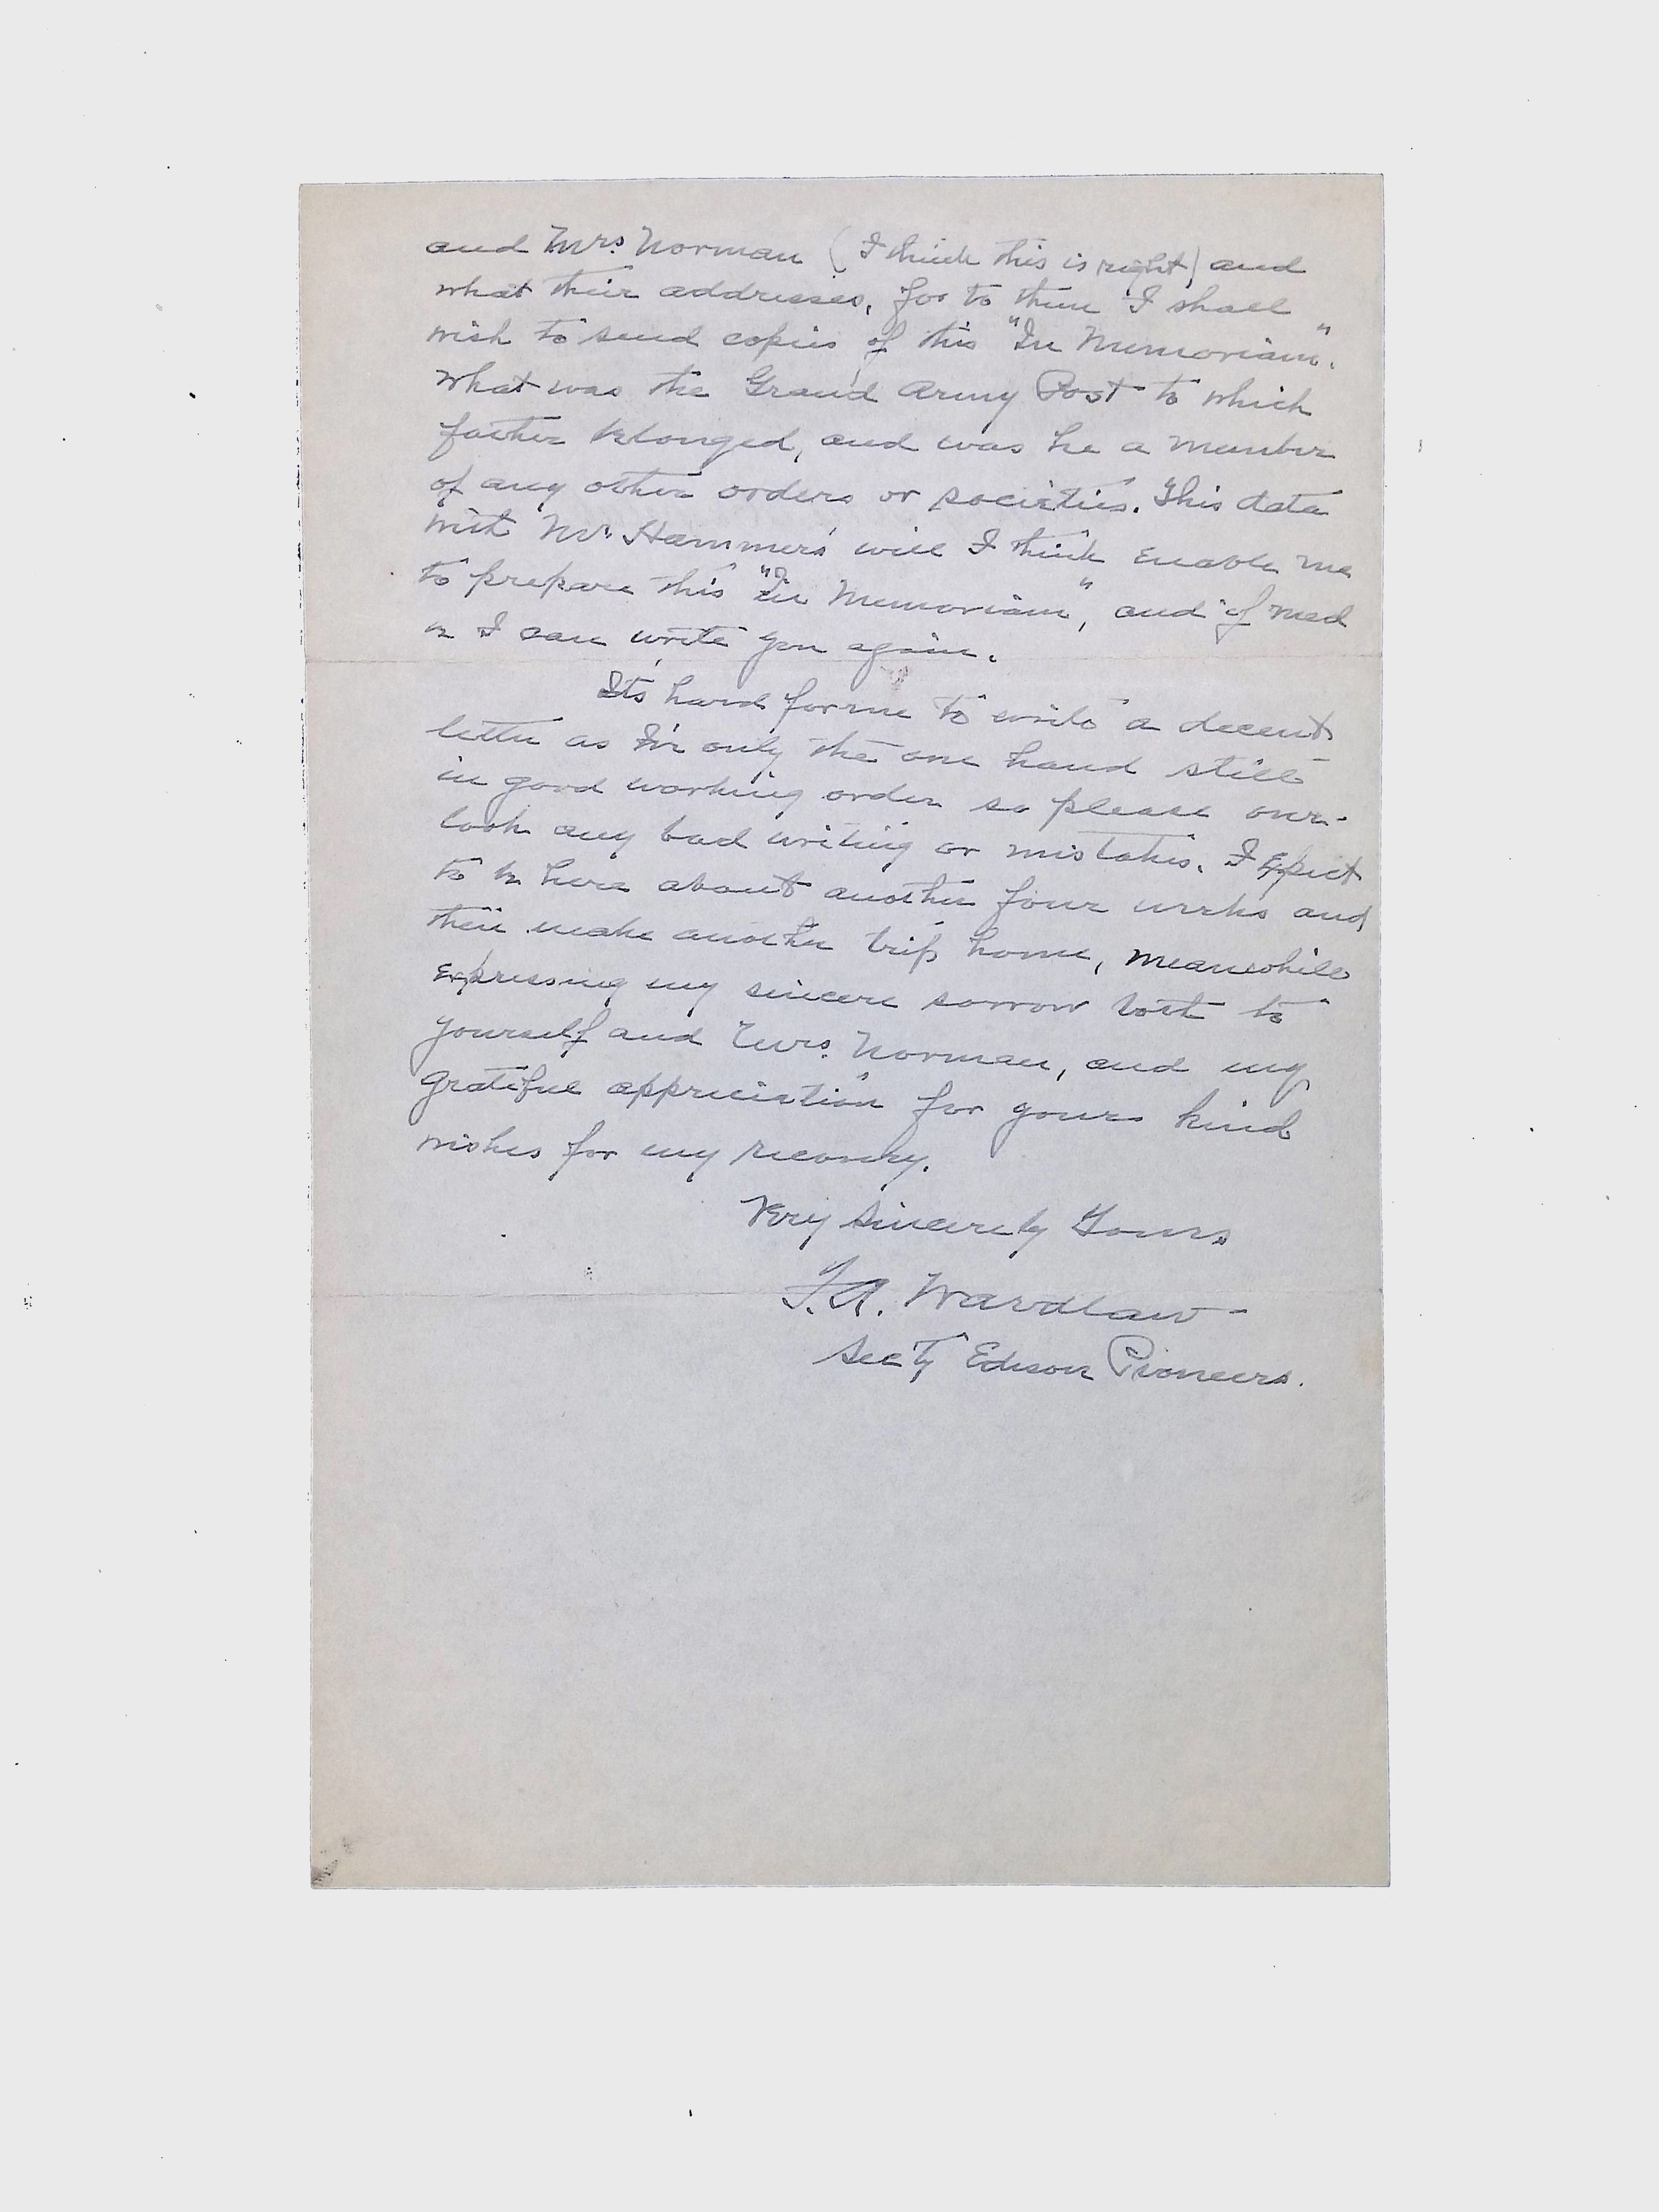 and Mrs. Norman (I think this is right) and
what their addresses, for to them I shall
wish to send copies of this "In Memoriam".
What was the Grand Army Post to which
father belonged, and was he a member
of any other orders or societies. This data
with Mr. Hammer's will I think enable me
to prepare this "In Memoriam", and if need
be I can write you again.
It's hard for me to write a decent
letter as I've only the one hand still
in good working order so please over-
look any bad writing or mistakes. I expect
to be here about another four weeks and
then make another trip home, meanwhile
expressing my sincere sorrow both to
yourself and Mrs. Norman, and my
grateful appreciation for yours kind
wishes for my recovery.
Very Sincerely Yours
F.A. Wardlaw -
Sec'ty Edison Pioneers.